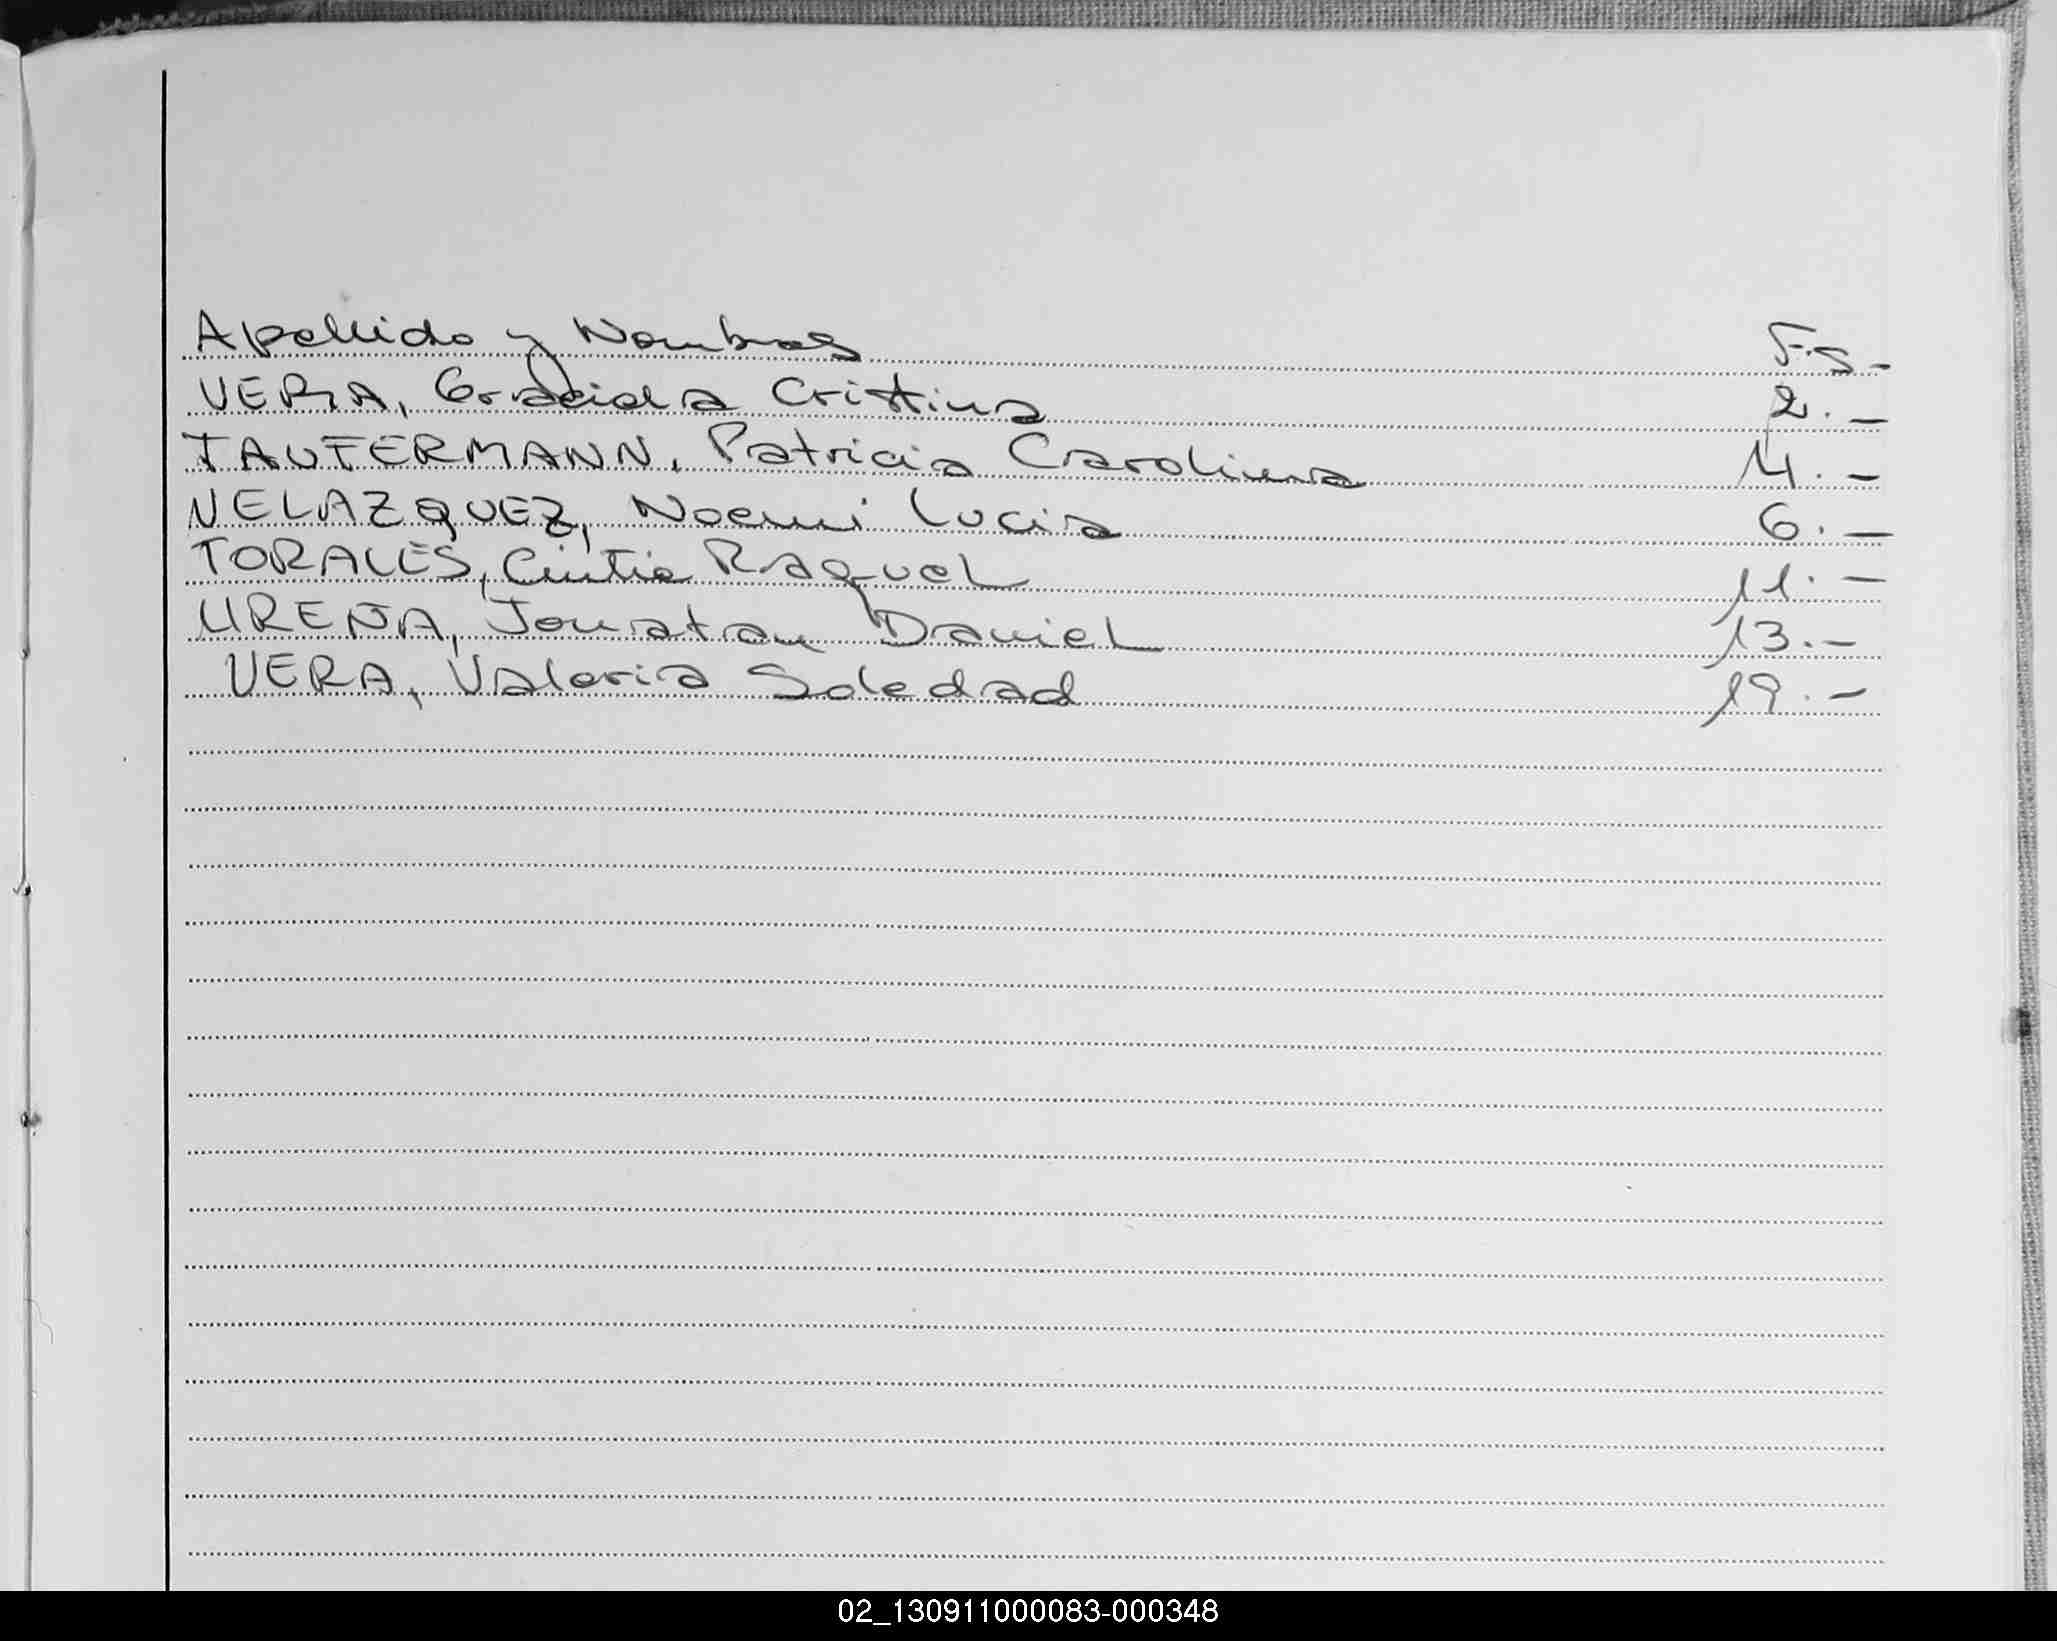 Apellido y Nombres Fs-
VERA, Graciela Cristina 2.-
TAUFERMANN, Patricia Carolina 4.-
VELAZQUEZ, Noemi Lucia 6.-
TORALES, Cintia Raquel 11.-
UREÑA, Jonatan Daniel 13.-
VERA, Valeria Soledad 19.-
02_130911000083-000348